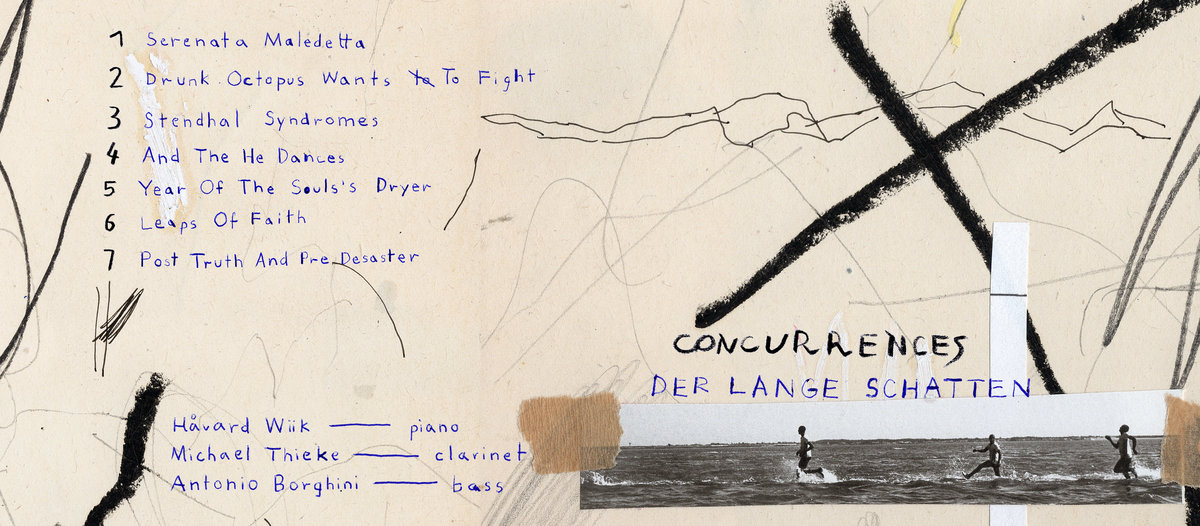 1 Serenata Maledetta
2 Drunk Octopus Wants to To Fight
3 Stendhal Syndromes
4 And The He Dances
5 Year Of The Souls's Dryer
6 Leaps Of Faith
7 Post Truth And Pre Desaster
Håvard Wiik — piano
Michael Thieke — clarinet
Antonio Borghini — bass
CONCURRENCES
DER LANGE SCHATTEN